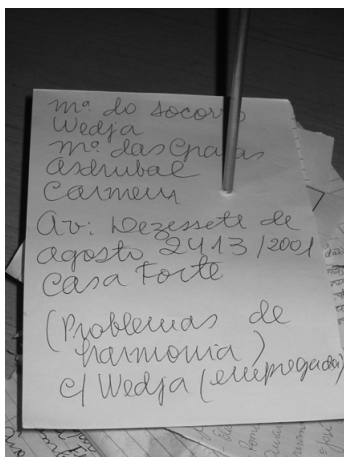 mª. do Socorro
Wedja
mª. das Graças
Asdrubal
Carmem
Av: Dezessete de
agosto 2413/2001
Casa Forte
(Problemas de
harmonia)
c/ Wedja (empregada)